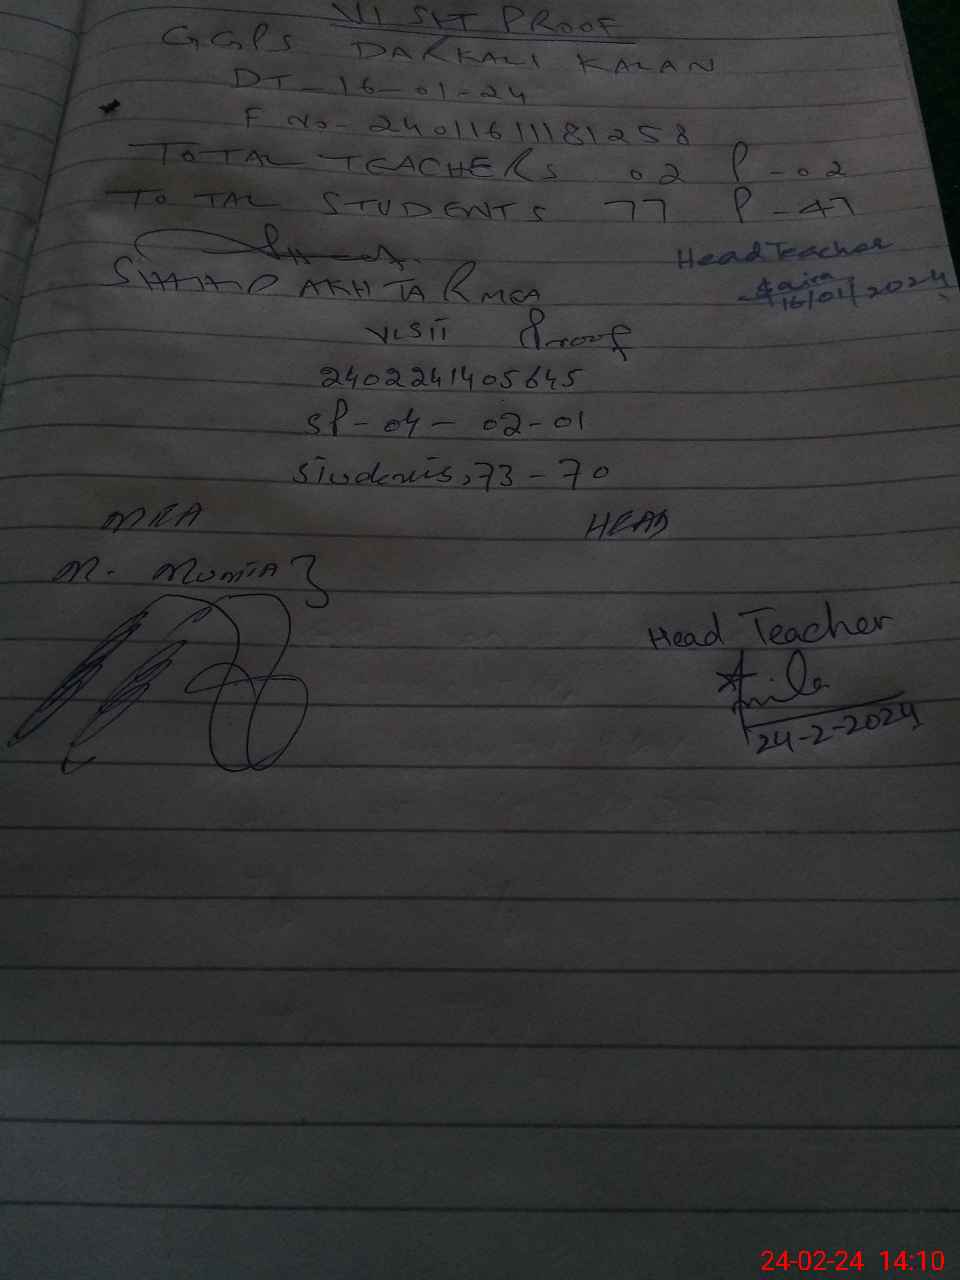 VISIT PROOF
GGPS DARKALI KALAN
DT - 16-01-24
F No - 24011611181258
TOTAL TEACHERS 02 P-02
TOTAL STUDENTS 77 P-47
Head Teacher
Saira
16/01/2024
SHAHID AKHTAR MEA
Visit Proof
2402241405645
SP-04-02-01
Students, 73-70
MEA HEAD
M. Mumtaz
Head Teacher
Anila
24-2-2024
24-02-24 14:10